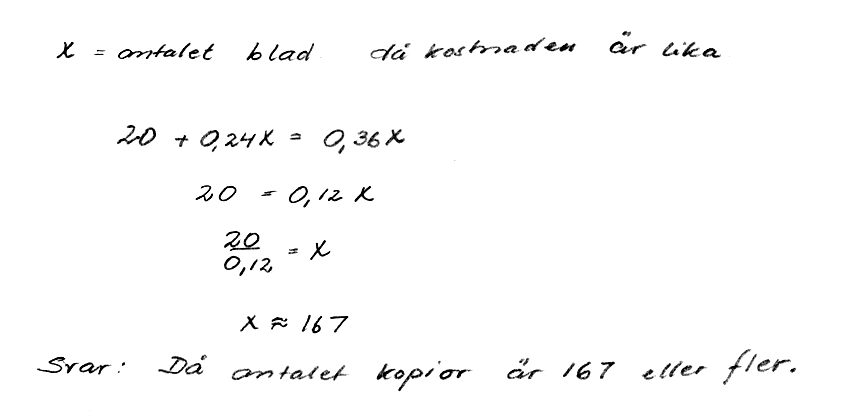 x = antalet blad då kostnaden är lika
20 + 0,24x = 0,36x
20 = 0,12x
20/0,12 = x
x ≈ 167
Svar: Då antalet kopior är 167 eller fler.